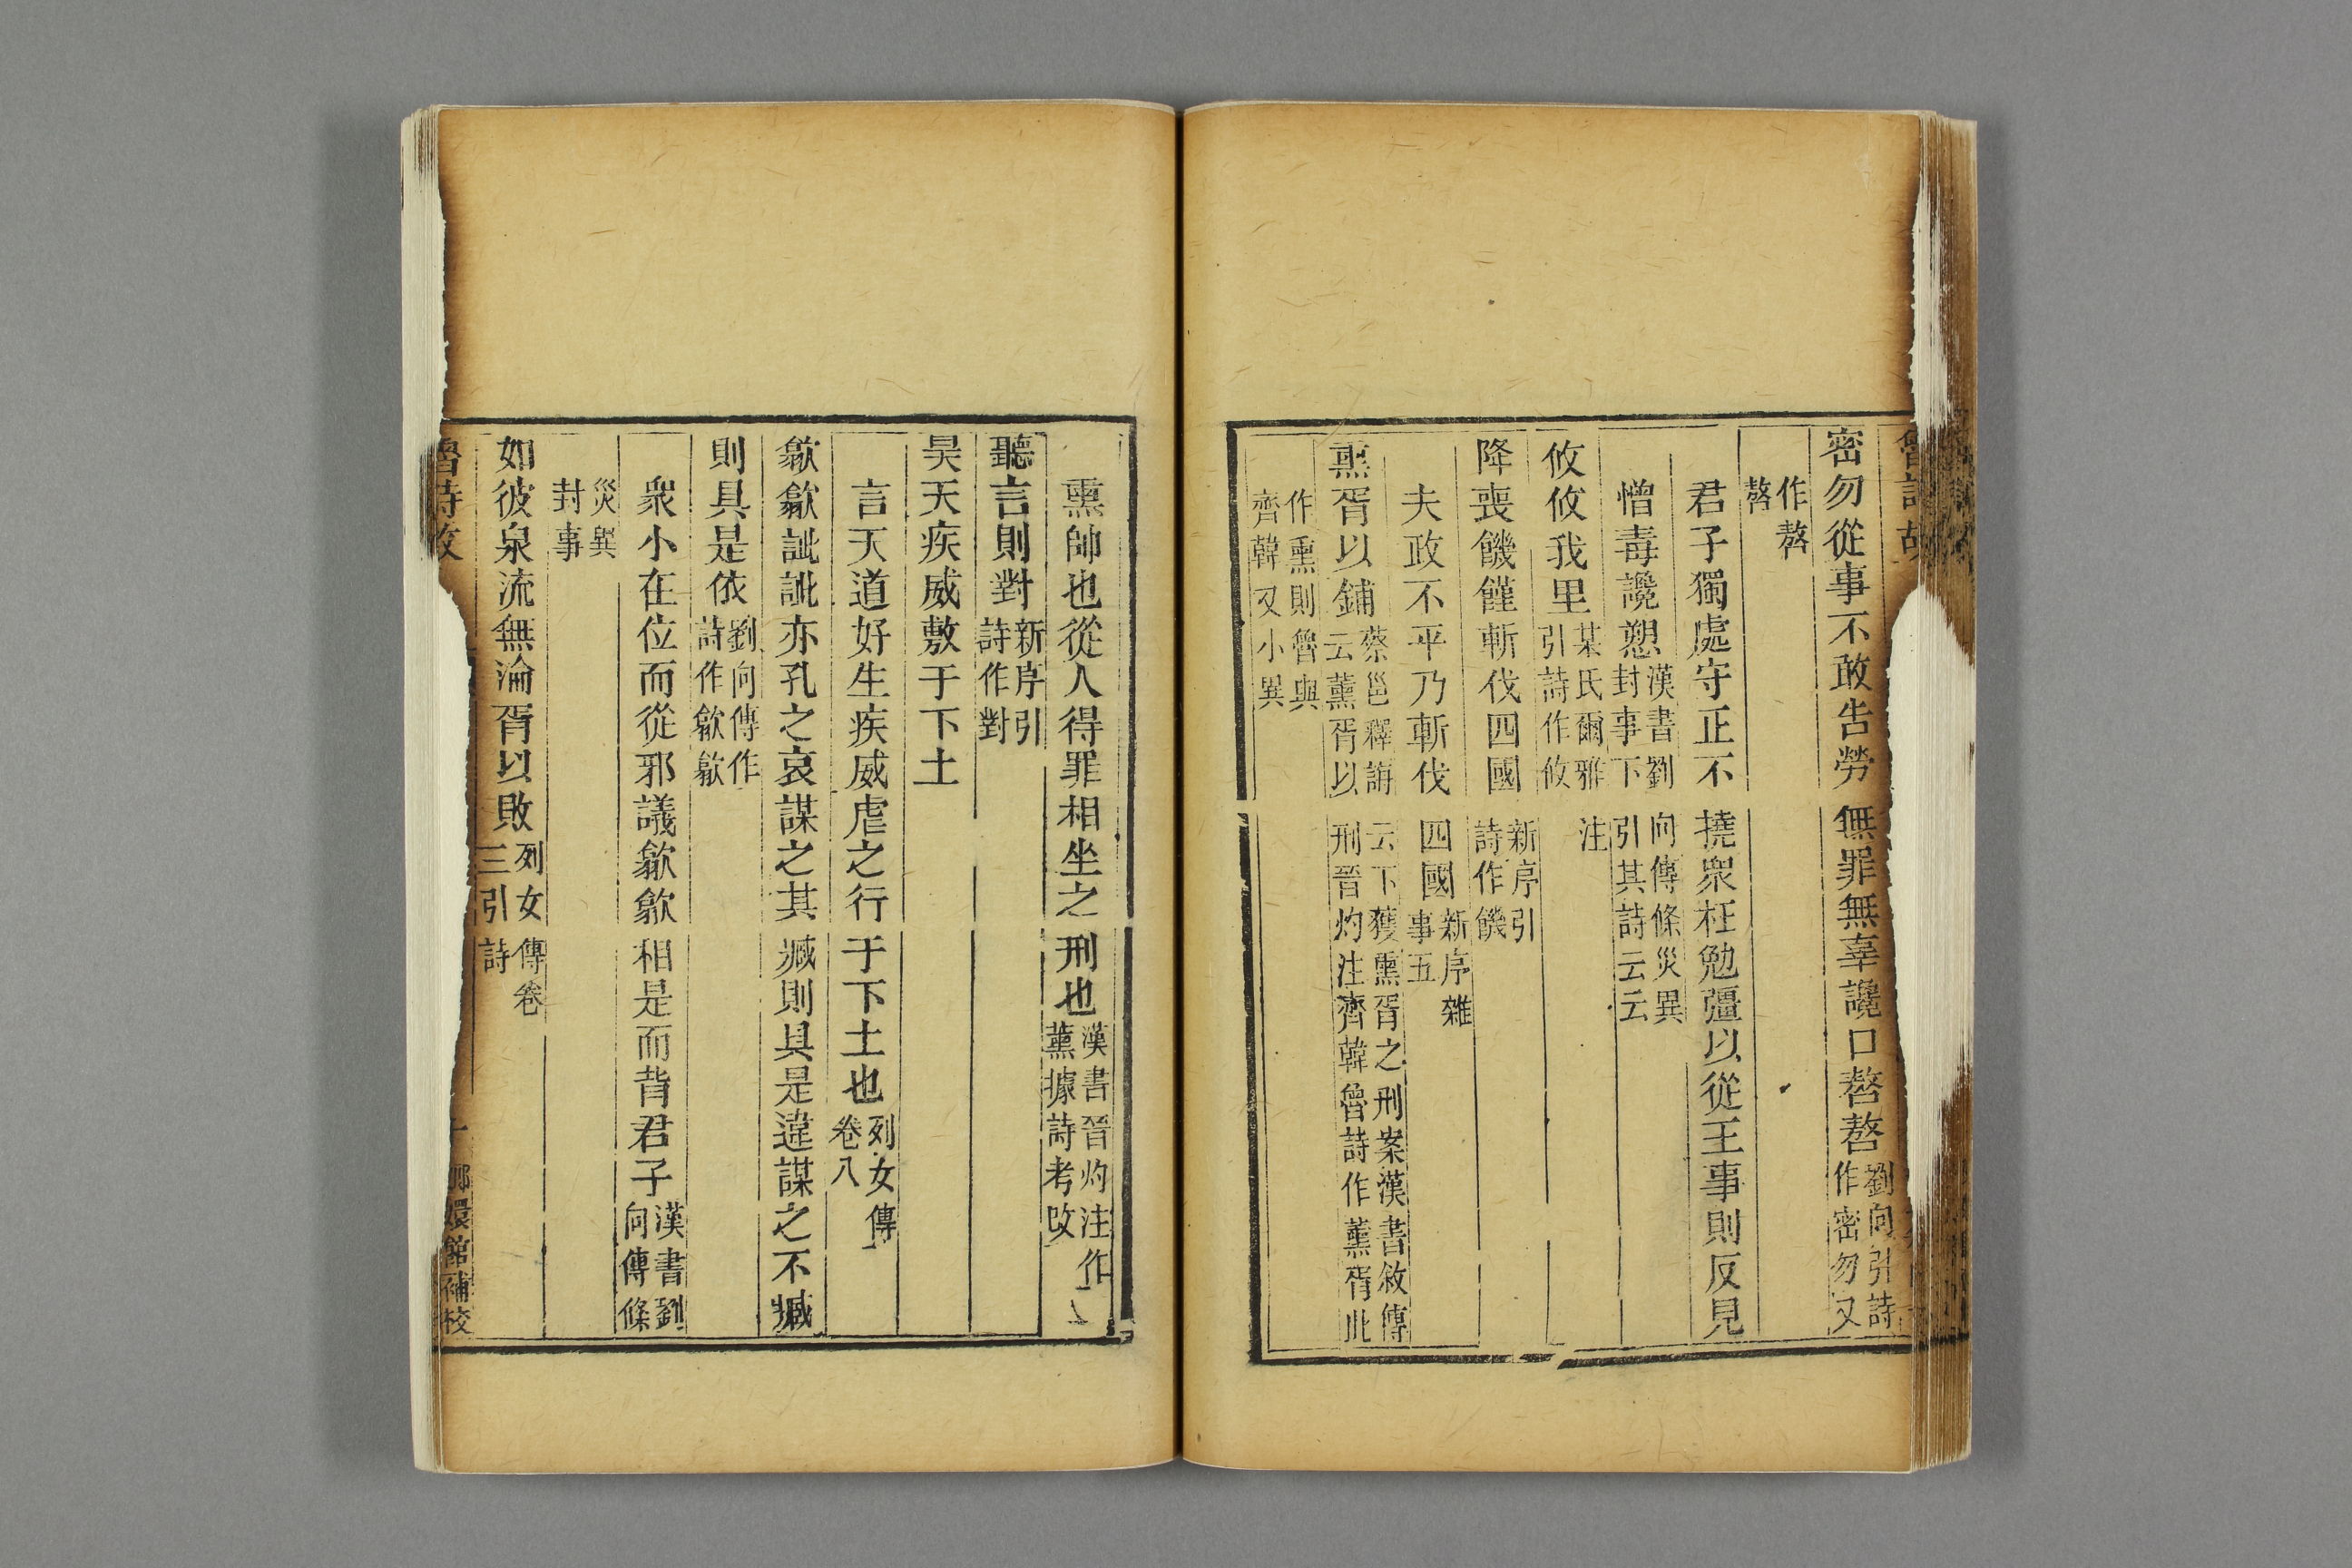 密勿從事不敢告勞無罪無辜讒口嗸嗸劉向引詩作密勿又
作嗸嗸
君子獨處守正不撓衆枉勉彊以從王事則反見
憎毒讒愬漢書劉向傳條災異封事下引其詩云云
攸攸我里某氏爾雅注引詩作攸
降喪饑饉斬伐四國新序引詩作饑
夫政不平乃斬伐四國新序雜事五
熏胥以鋪蔡邕釋誨云下獲熏胥之刑案漢書敘傳云薰胥以刑晉灼注齊韓魯詩作薰胥此
作熏則魯與齊韓又小異
熏帥也從人得罪相坐之刑也漢書晉灼注作薰據詩考改
聽言則對新序引詩作對
昊天疾威敷于下土
言天道好生疾威虐之行于下土也列女傳卷八
歙歙訿訿亦孔之哀謀之其臧則具是違謀之不臧
則具是依劉向傳作詩作歙歙
衆小在位而從邪議歙歙相是而背君子漢書劉向傳條
災異封事
如彼泉流無淪胥以敗列女傳卷三引詩
魯詩故
嬛館補校